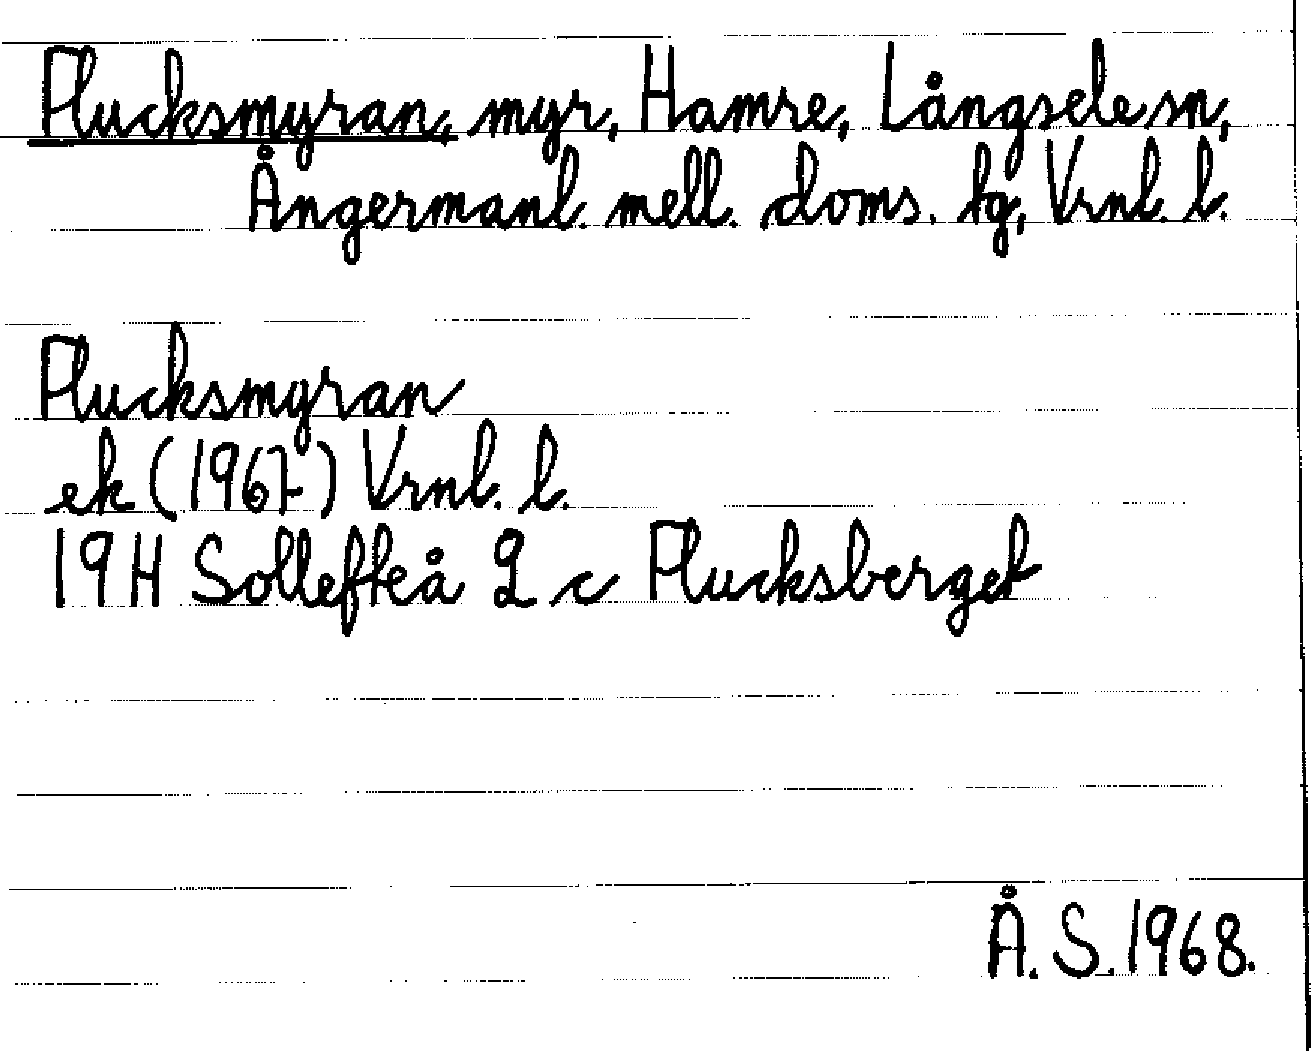 Plucksmyran, myr, Hamre, Långsele sn,
Ångermanl. mell. doms. lg, Vrnl. l.
Plucksmyran
ek (1967) Vrnl. l.
19H Sollefteå 2 c Plucksberget
Å. S. 1968.